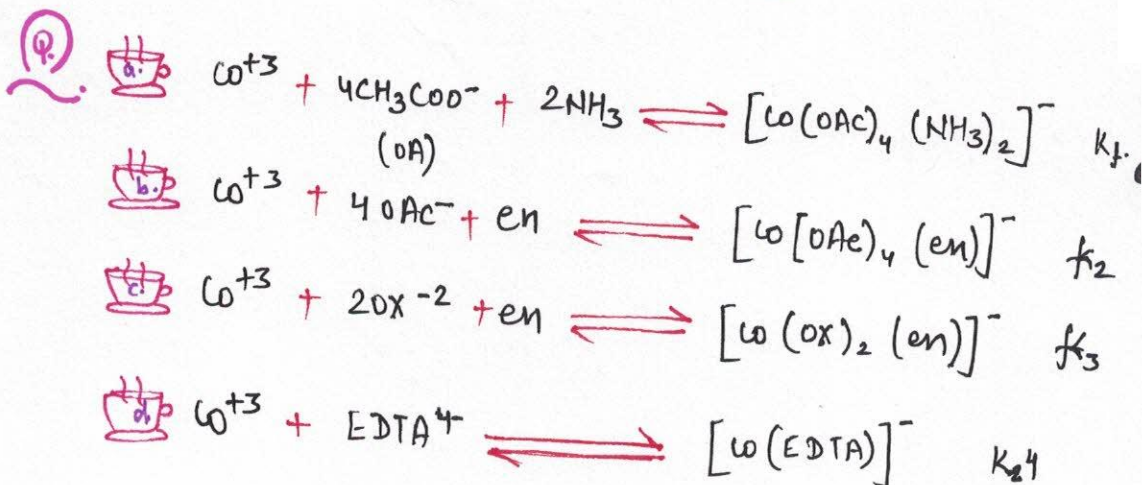 Q.
a. Co+3 + 4CH3COO- + 2NH3 ⇌ [Co(OAC)4 (NH3)2]- K1.
(OA)
b. Co+3 + 4OAc- + en ⇌ [Co[OAc)4 (en)]- K2
c. Co+3 + 2OX-2 + en ⇌ [Co(OX)2 (en)]- K3
d. Co+3 + EDTA4- ⇌ [Co(EDTA)]- K4